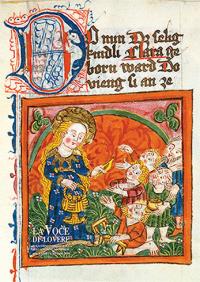 Do nun Dz selig
kindli Clara ge
born ward Do
vieng si an ze
LA VOCE
DI LOVERE